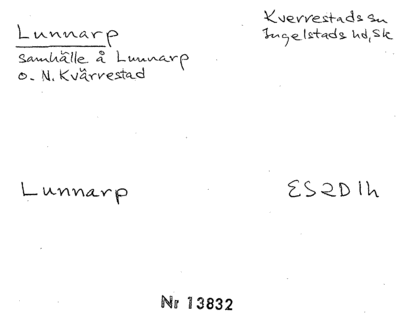 Lunnarp
samhälle å Lunnarp
o. N. Kvärrestad
Kverrestads sn
Ingelstads hd, Sk
Lunnarp
ES2D1h
Nr 13832